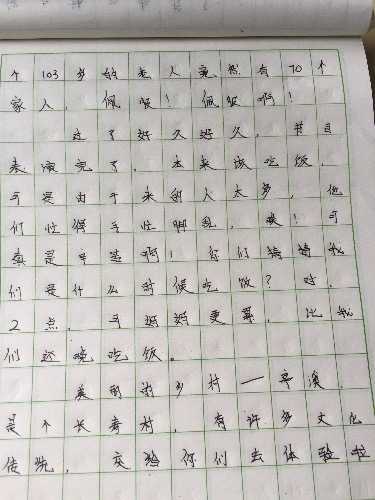 个103岁的老人竟然有70个
家人，佩服！佩服啊！
过了好久好久，节目
表演完了，本来该吃饭，
可是由于来的人太多，他
们忙得手忙脚乱，唉！可
真是辛苦啊！你们猜猜我
们是什么时候吃饭？对，
2点，可妈妈更晚，比我
们还晚吃饭。
美丽的乡村——平溪，
是个长寿村，有许多文化
传统，交给你们去体验啦